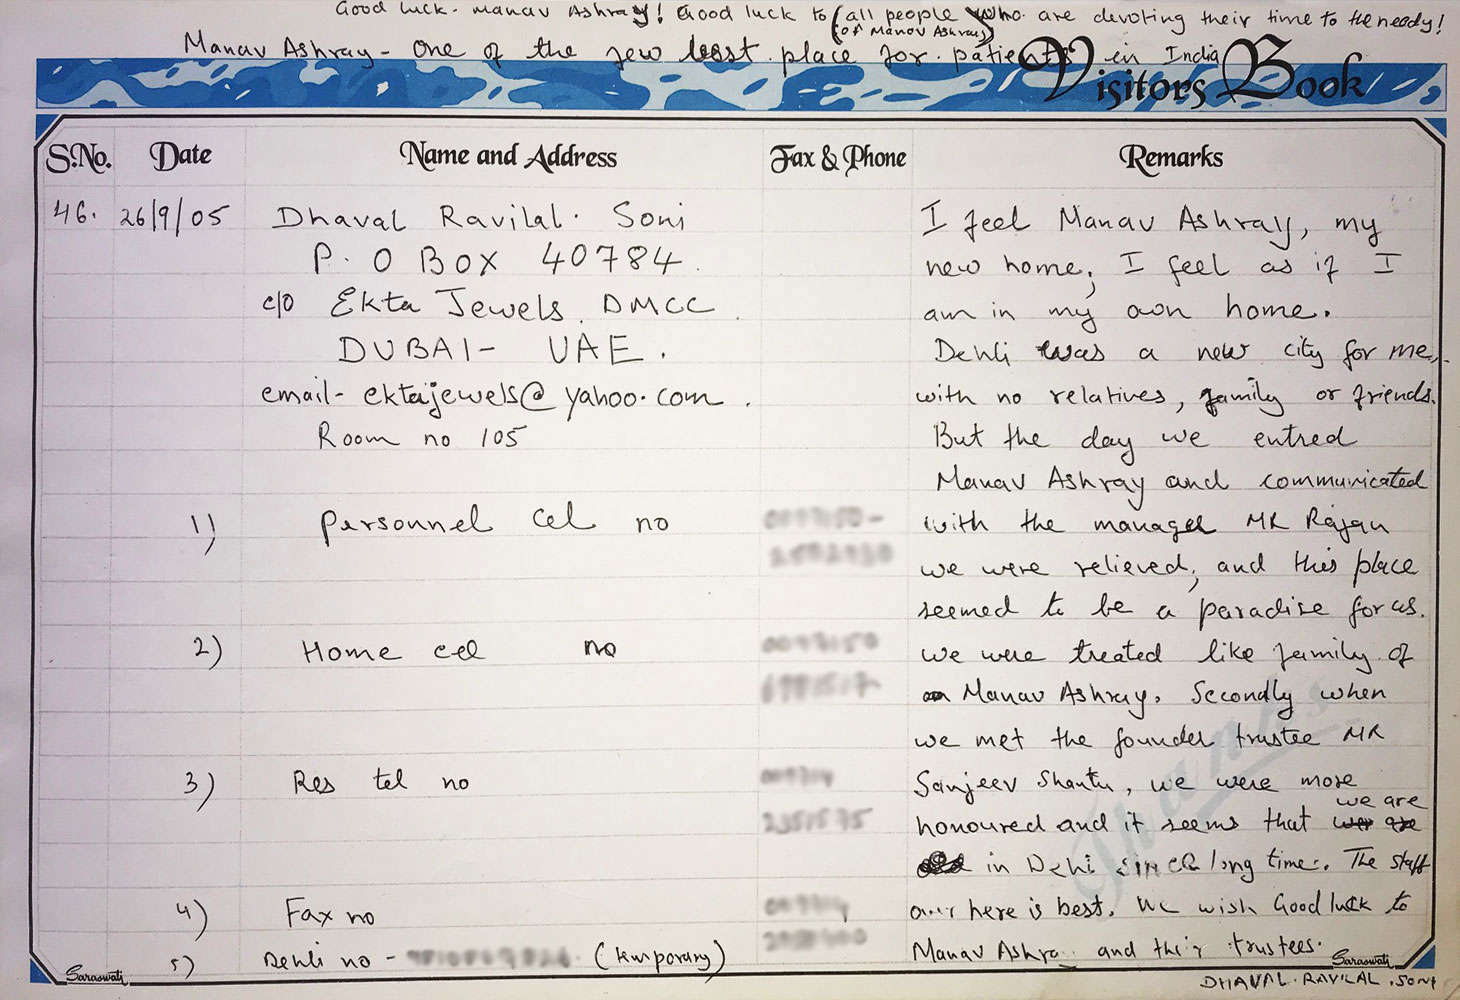 Good luck. Manav Ashray! Good luck to (all people who are devoting their time to the needy!
(of Manav Ashray)
Manav Ashray - One of the few best place for patients in India
Visitors Book
S.No. Date Name and Address Fax & Phone Remarks
46. 26/9/05 Dhaval Ravilal. Soni
P. O BOX 40784.
c/o Ekta Jewels. DMCC
DUBAI- UAE.
email- ektajewels@yahoo.com.
Room no 105
1) personnel cel no
2) Home cel no
3) Res tel no
4) Fax no
5) Dehli no - (temporary)
I feel Manav Ashray, my
new home, I feel as if I
am in my own home.
Dehli was a new city for me,
with no relatives, family or friends.
But the day we entred
Manav Ashray and communicated
with the manager MR Rajan
we were relieved, and this place
seemed to be a paradise for us.
we were treated like family of
Manav Ashray. Secondly when
we met the founder trustee MR
Sanjeev Shantu, we were more
we are
honoured and it seems that
in Dehli since long time. The staff
over here is best. We wish Good luck to
Manav Ashra and their trustees.
Thanks
Saraswati
Saraswati
DHAVAL. RAVILAL. SONI